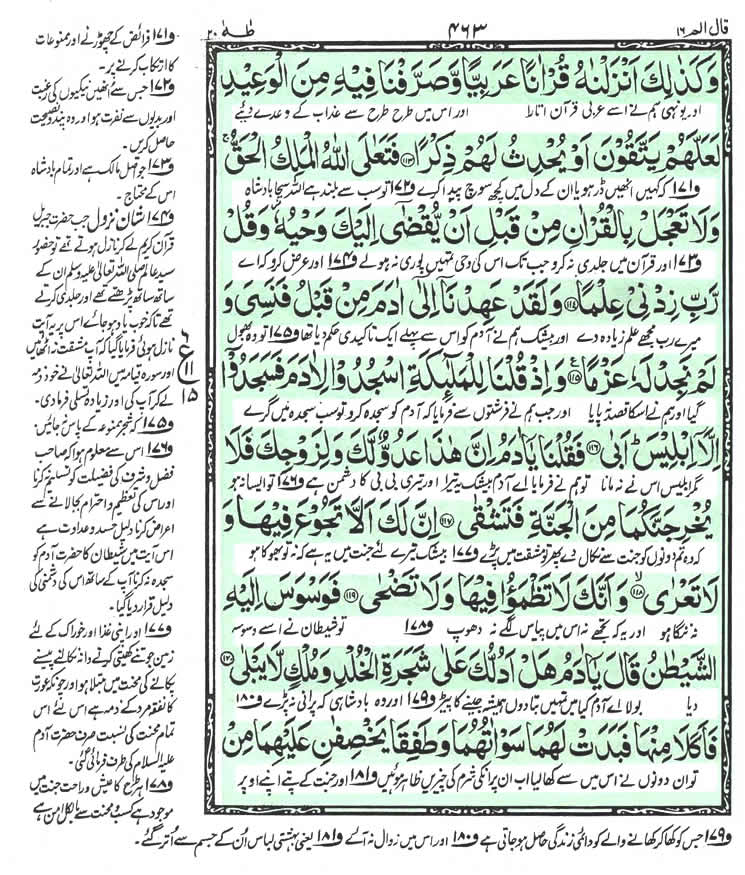 قال الم ١٦
٤٦٣
طٰهٰ ٢٠
وَكَذٰلِكَ اَنْزَلْنٰهُ قُرْاٰنًا عَرَبِيًّا وَّصَرَّفْنَا فِيْهِ مِنَ الْوَعِيْدِ
اور یونہی ہم نے اسے عربی قرآن اتارا اور اس میں طرح طرح سے عذاب کے وعدے دیئے
لَعَلَّهُمْ يَتَّقُوْنَ اَوْ يُحْدِثُ لَهُمْ ذِكْرًا ﴿۱۱۳﴾ فَتَعٰلَى اللّٰهُ الْمَلِكُ الْحَقُّ ۚ
و۱۷۱ کہ کہیں انھیں ڈر ہو یا ان کے دل میں کچھ سوچ پیدا کرے و۱۷۲ تو سب سے بلند ہے اللہ سچا بادشاہ
وَلَا تَعْجَلْ بِالْقُرْاٰنِ مِنْ قَبْلِ اَنْ يُّقْضٰۤى اِلَيْكَ وَحْيُهٗ ۫ وَقُلْ
و۱۷۳ اور قرآن میں جلدی نہ کرو جب تک اس کی وحی تمہیں پوری نہ ہولے و۱۷۴ اور عرض کرو کہ اے
رَّبِّ زِدْنِيْ عِلْمًا ﴿۱۱۴﴾ وَلَقَدْ عَهِدْنَاۤ اِلٰۤى اٰدَمَ مِنْ قَبْلُ فَنَسِيَ وَ
میرے رب مجھے علم زیادہ دے اور بیشک ہم نے آدم کو اس سے پہلے ایک تاکیدی حکم دیا تھا و۱۷۵ تو وہ بھول
لَمْ نَجِدْ لَهٗ عَزْمًا ﴿۱۱۵﴾ وَاِذْ قُلْنَا لِلْمَلٰٓئِكَةِ اسْجُدُوْا لِاٰدَمَ فَسَجَدُوْۤا
گیا اور ہم نے اس کا قصد نہ پایا اور جب ہم نے فرشتوں سے فرمایا کہ آدم کو سجدہ کرو تو سب سجدہ میں گرے
اِلَّاۤ اِبْلِيْسَ ؕ اَبٰى ﴿۱۱۶﴾ فَقُلْنَا يٰۤاٰدَمُ اِنَّ هٰذَا عَدُوٌّ لَّكَ وَلِزَوْجِكَ فَلَا
مگر ابلیس اس نے نہ مانا تو ہم نے فرمایا اے آدم بیشک یہ تیرا اور تیری بی بی کا دشمن ہے و۱۷۶ تو ایسا نہ ہو
يُخْرِجَنَّكُمَا مِنَ الْجَنَّةِ فَتَشْقٰى ﴿۱۱۷﴾ اِنَّ لَكَ اَلَّا تَجُوْعَ فِيْهَا وَ
کہ وہ تم دونوں کو جنت سے نکال دے پھر تو مشقت میں پڑے و۱۷۷ بیشک تیرے لئے جنت میں یہ ہے کہ نہ تو بھوکا ہو
لَا تَعْرٰى ﴿۱۱۸﴾ وَاَنَّكَ لَا تَظْمَؤُا فِيْهَا وَلَا تَضْحٰى ﴿۱۱۹﴾ فَوَسْوَسَ اِلَيْهِ
نہ ننگا ہو اور یہ کہ تجھے نہ اس میں پیاس لگے نہ دھوپ و۱۷۸ تو شیطان نے اسے وسوسہ
الشَّيْطٰنُ قَالَ يٰۤاٰدَمُ هَلْ اَدُلُّكَ عَلٰى شَجَرَةِ الْخُلْدِ وَمُلْكٍ لَّا يَبْلٰى ﴿۱۲۰﴾
دیا بولا اے آدم کیا میں تمہیں بتا دوں ہمیشہ جینے کا پیڑ و۱۷۹ اور وہ بادشاہی کہ پرانی نہ پڑے و۱۸۰
فَاَكَلَا مِنْهَا فَبَدَتْ لَهُمَا سَوْاٰتُهُمَا وَطَفِقَا يَخْصِفٰنِ عَلَيْهِمَا مِنْ
تو ان دونوں نے اس میں سے کھا لیا اب ان پر انکی شرم کی چیزیں ظاہر ہوئیں و۱۸۱ اور جنت کے پتے اپنے اوپر
ع
۱۱
۱۵
و۱۷۱ فرائض کے چھوڑنے اور ممنوعات
کا ارتکاب کرنے پر۔
و۱۷۲ جس سے انھیں نیکیوں کی رغبت
اور بدیوں سے نفرت ہو اور وہ پند و نصیحت
حاصل کریں۔
و۱۷۳ جو اصل مالک ہے اور تمام بادشاہ
اس کے محتاج۔
و۱۷۴ شان نزول جب حضرت جبریل
قرآن کریم لے کر نازل ہوتے تھے تو حضور
سید عالم صلی اللہ تعالیٰ علیہ وسلم ان کے
ساتھ ساتھ پڑھتے تھے اور جلدی کرتے
تھے تاکہ خوب یاد ہو جائے اس پر یہ آیت
نازل ہوئی فرمایا گیا کہ آپ مشقت نہ اٹھائیں
اور سورہ قیامہ میں اللہ تعالیٰ نے خود ذمہ
لے کر آپ کی اور زیادہ تسلی فرما دی۔
و۱۷۵ کہ شجر ممنوعہ کے پاس نہ جائیں۔
و۱۷۶ اس سے معلوم ہوا کہ صاحب
فضل و شرف کی فضیلت کو تسلیم نہ کرنا
اور اس کی تعظیم و احترام بجا لانے سے
اعراض کرنا دلیل حسد و عداوت ہے
اس آیت میں شیطان کا حضرت آدم کو
سجدہ نہ کرنا آپ کے ساتھ اس کی دشمنی کی
دلیل قرار دیا گیا۔
و۱۷۷ اور اپنی غذا اور خوراک کے لئے
زمین جوتنے کھیتی کرنے دانہ نکالنے پیسنے
پکانے کی محنت میں مبتلا ہو اور چونکہ عورت
کا نفقہ مرد کے ذمہ ہے اس لئے اس
تمام محنت کی نسبت صرف حضرت آدم
علیہ السلام کی طرف فرمائی گئی۔
و۱۷۸ ہر طرح کا عیش و راحت جنت میں
موجود ہے کسب و محنت سے بالکل امن ہے
و۱۷۹ جس کو کھا کر کھانے والے کو دائمی زندگی حاصل ہو جاتی ہے و۱۸۰ اور اس میں زوال نہ آئے و۱۸۱ یعنی بہشتی لباس اُن کے جسم سے اُتر گئے۔